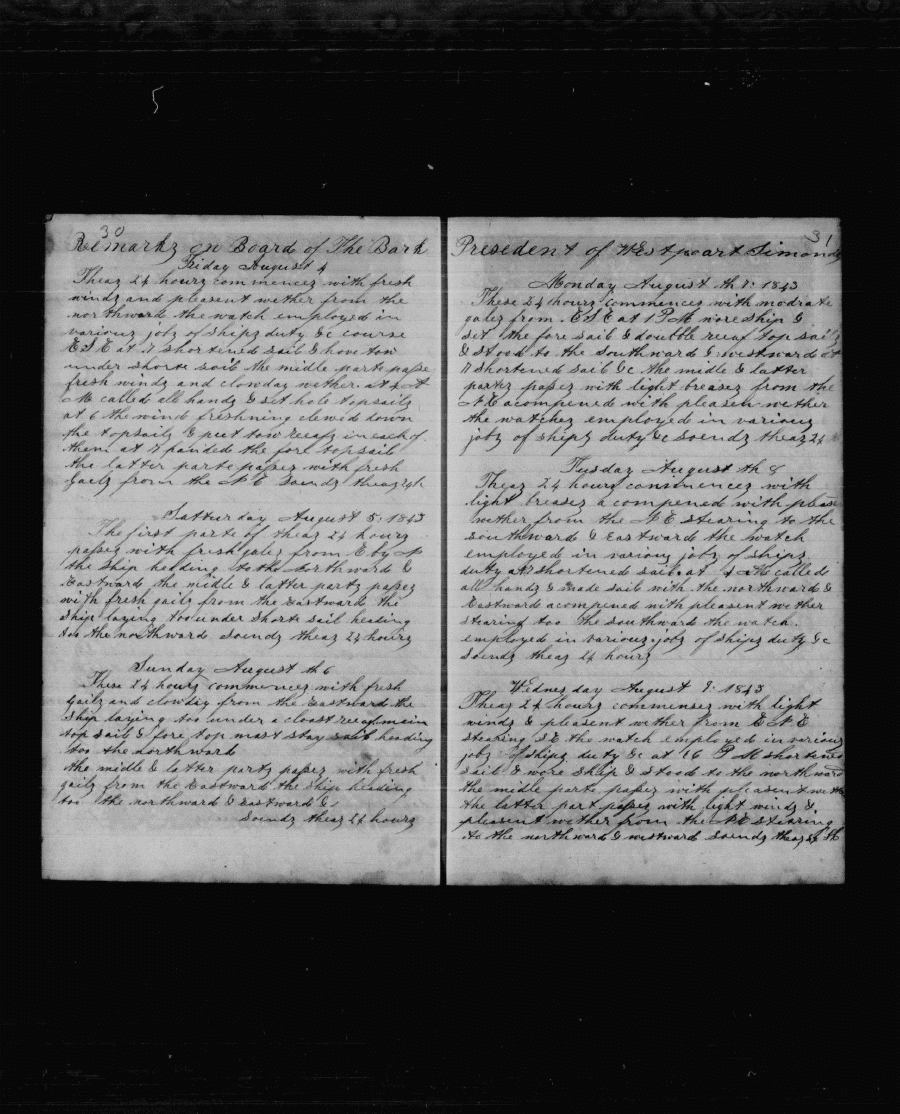 30
Remarks on Board of The Bark
Friday August 4
Theas 24 hours commences with fresh
winds and pleasent wether from the
northward the watch employed in
various jobs of ships duty &c course
ESE at 7 shortened sail & hove tow
under short sail the middle parts passe
fresh winds and clowday wether. at 4 A
M called all hands & set hole topsails
at 6 the wind freshning clewid down
the topsails & put tow reeafs in each of
them at 7 furided the fore topsail
the latter parte passes with fresh
gails from the N E soends theas 24 h
Satturday August 5, 1843
The first parte of theas 24 hours
passes with fresh gales from E by N
the ship heading to the northward &
Eastward the middle & latter parts passes
with fresh gails from the Eastward the
ship laying too under short sail heading
too the northward soends theas 24 hours
Sunday August th 6
These 24 hours commences with fresh
gails and clowdy from the Eastward the
ship laying too under a closst reeaf main
top sail & fore top mast stay sail heading
too the northward
the middle & latter parts passes with fresh
gails from the Eastward the ship heading
too the northward & Eastward &
soends theas 24 hours
31
Presedent of Westpoart Simonds
Monday August th 7: 1843
These 24 hours commences with modrate
gales from ESE at 1 PM wore ship &
set the fore sail & doubble reeaf top sails
& stood to the southward & westward at
7 shortened sail &c the middle & latter
parts passes with light breases from the
NE acompened with pleasen wether
the watches employed in various
jobs of ships duty &c soends theas 24 h
Tusday August th 8
Theas 24 hours commences with
light breases acompened with pleasen
wether from the NE stearing to the
southward & Eastward the watch
employed in various jobs of ships
duty at 7 shortened sail at 4 AM called
all hands & made sail with the northward &
Eastward acompened with pleasent wether
stearing too the southward the watch
employed in various jobs of ships duty &c
soends theas 24 hours
Wednesday August 9: 1843
Theas 24 hours commenses with light
winds & pleasent wether from ENE
stearing SE the watch employed in various
jobs of ships duty &c at 6 PM shortened
sail & wore ship & stood to the northward
the midle parte passes with pleasent weth
the latter part passes with light winds &
pleasent wether from the NE stearing
to the northward & westward soends theas 24 h